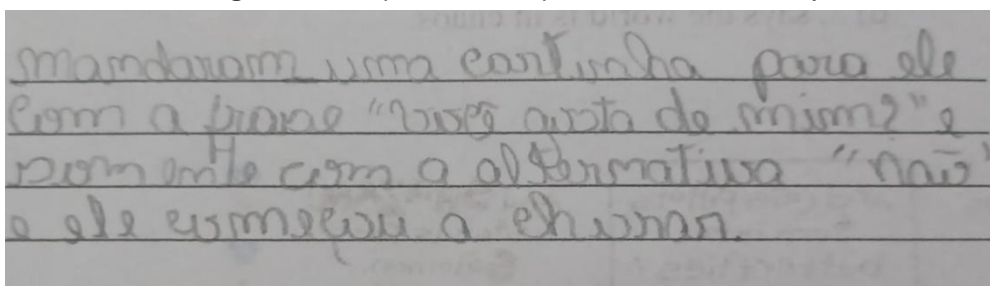 mandaram uma cartinha para ele
com a frase "você gosta de mim?" e
somente com a alternativa "não"
e ele começou a chorar.